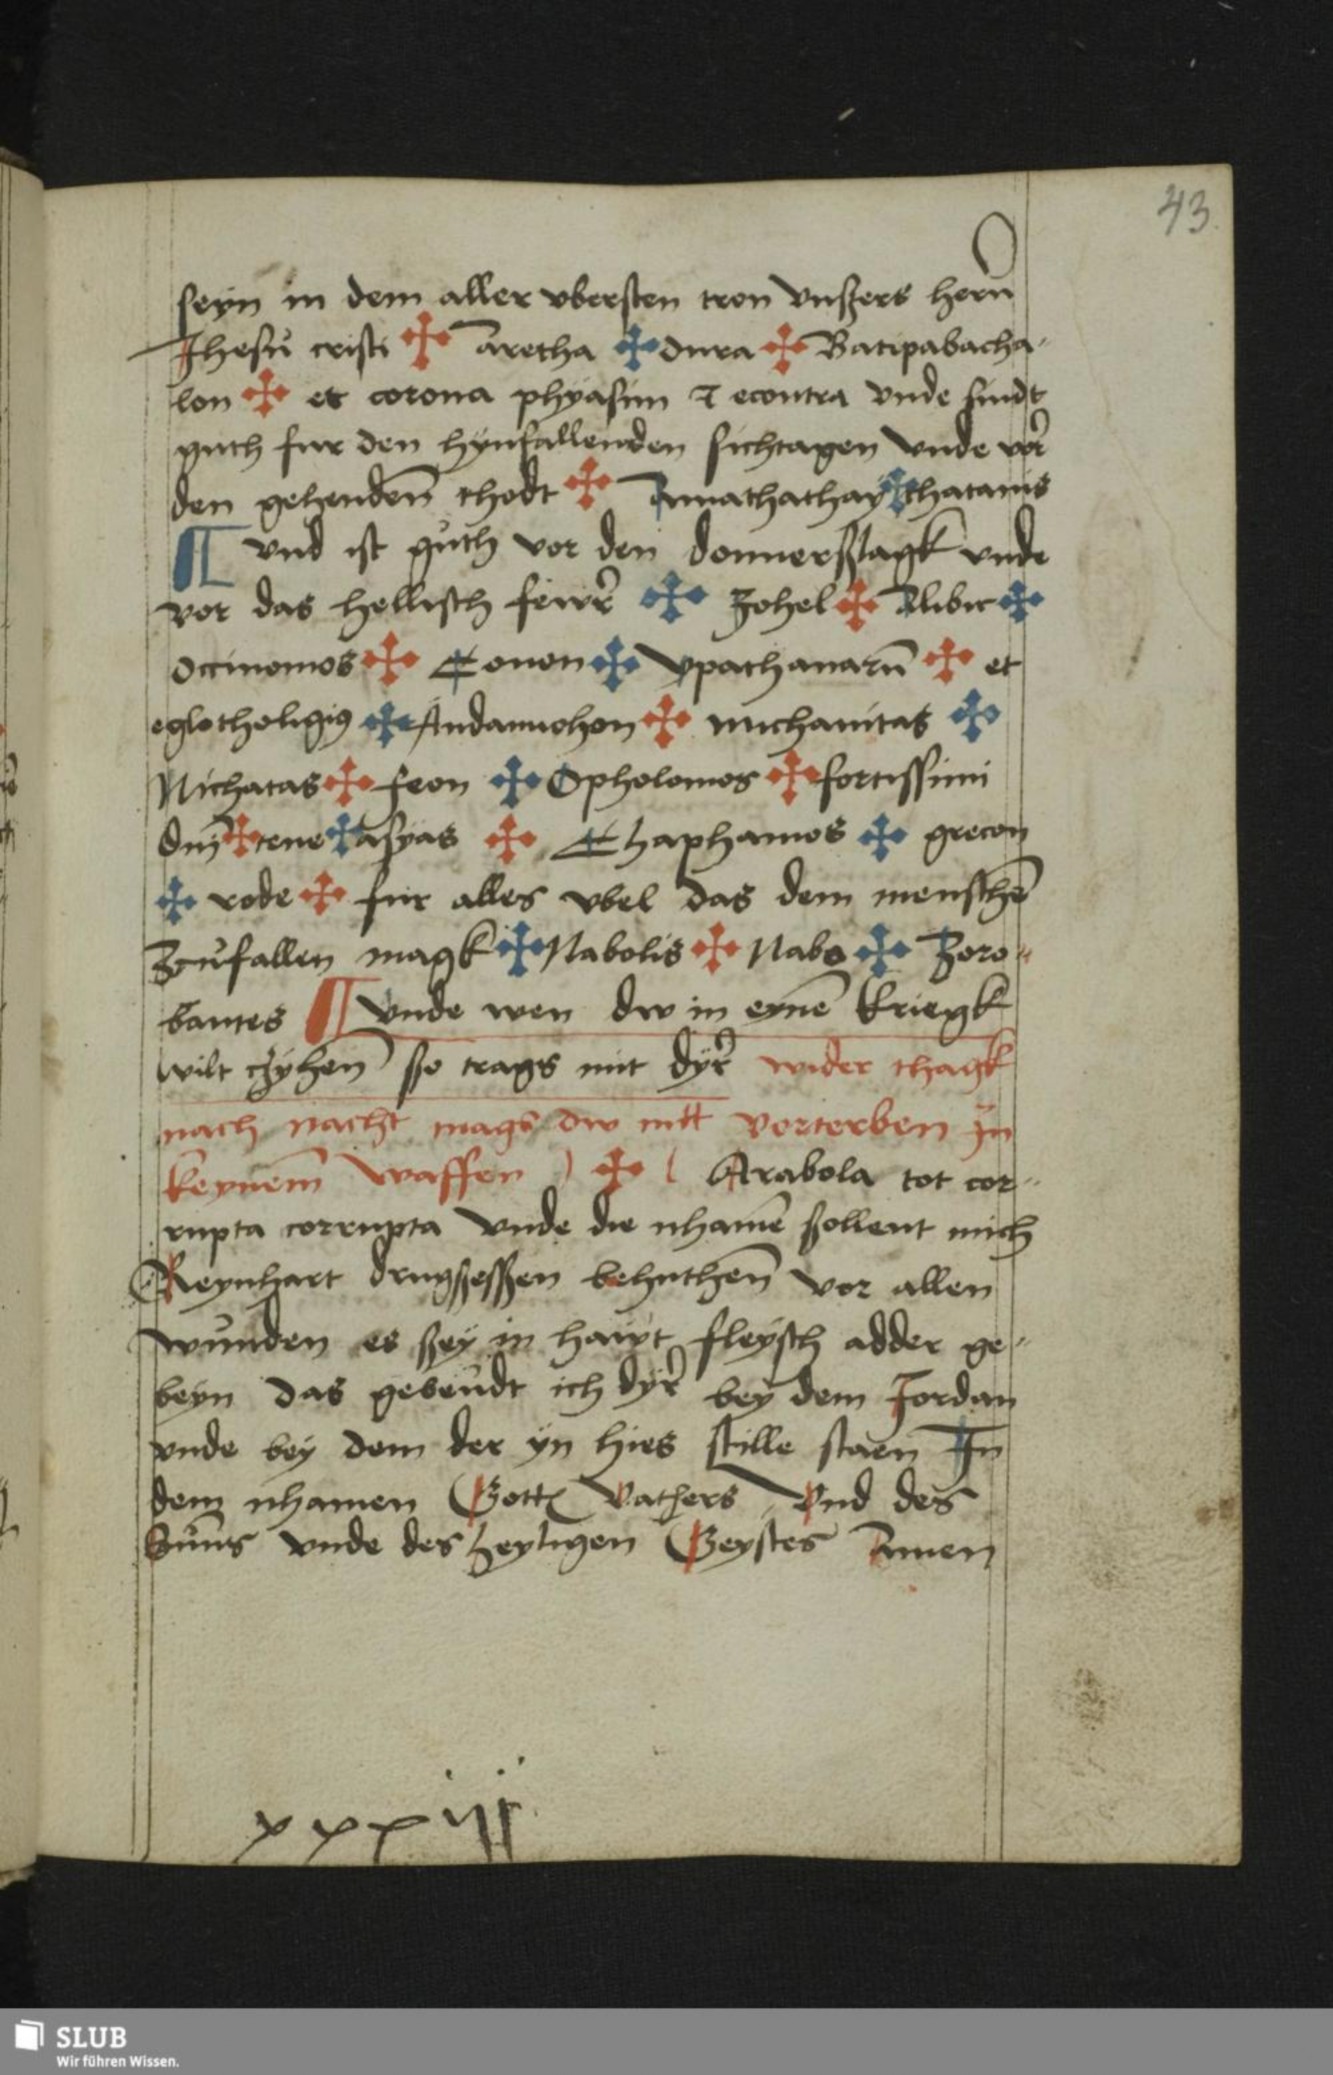 43
seyn in dem aller vbersten tron vnßers hern̄
Jhesu cristi ✠ Aretha ✠ dura ✠ Batipabacha-
lon ✠ et corona phyasim ⁊ econtra vnde sindt
guth fur den hynfallenden sichtagen vnde vor
den gehenden̄ thodt ✠ Amathathay ✠ thatanis
¶ vnd ist guth vor den donnerßlagk vnde
vor das hellisch fewer ✠ Zohel ✠ Alibir ✠
Occinomos ✠ Eonon ✠ Vpathanarū ✠ et
eglotheligiꝯ ✠ Andamichon ✠ michanitas ✠
Nichatas ✠ feon ✠ Opholomos ✠ fortissimi
dn̄j ✠ tene ✠ asyas ✠ Ehaphamos ✠ grecon
✠ rode ✠ fur alles vbel das dem menschē
Zcufallen magk ✠ Nabolis ✠ Nabo ✠ Zoro-
bantes ¶ vnde wen dw in eynē kriegk
wilt czyhen̄ so trags mit dyr wider thagk
nach nacht mags dw nitt vorterben Jn
keynem̄ waffen ) ✠ ( Arabola tot cor-
rupta corrupta vnde die nhamē sollent mich
Reynhart drugseßen behuthen̄ vor allen
wunden es sey in hawt fleysch adder ge-
beyn das gebeudt ich dyr bey dem Jordan
vnde bey dem der yn hies stille staen Jn
dem nhamen Gotts Vathers Vnd des
Suns vnde des heyligen Geystes Amen
xxxiij
SLUB
Wir führen Wissen.